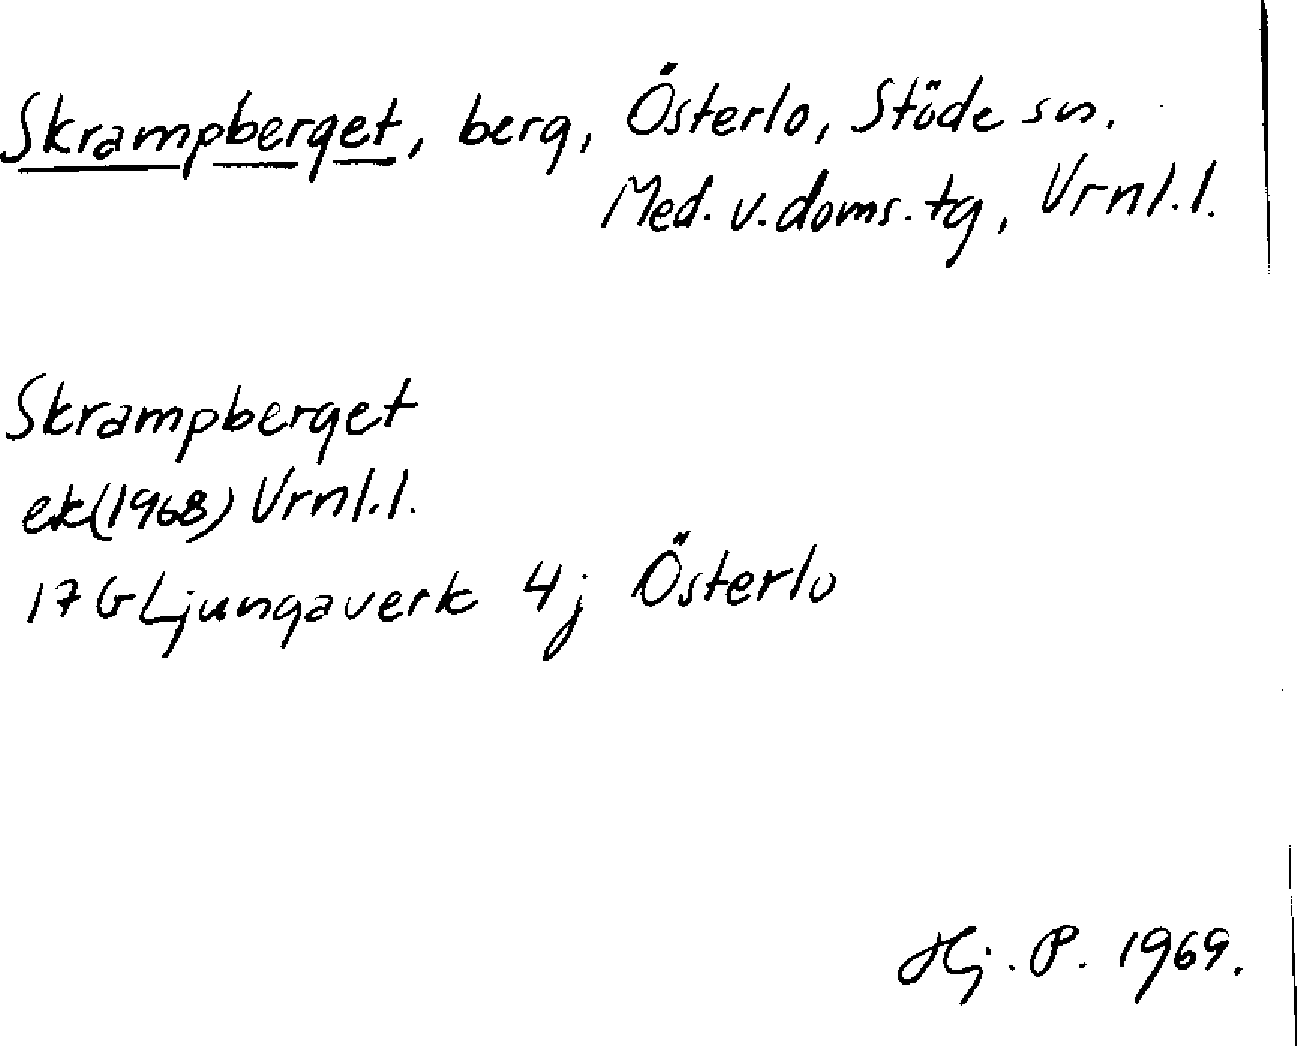 Skrampberget, berg, Österlo, Stöde sn.
Med. v. doms. tg, Vrnl.l.
Skrampberget
ek(1968) Vrnl.l.
17 G Ljungaverk 4j Österlo
Hj. P. 1969.